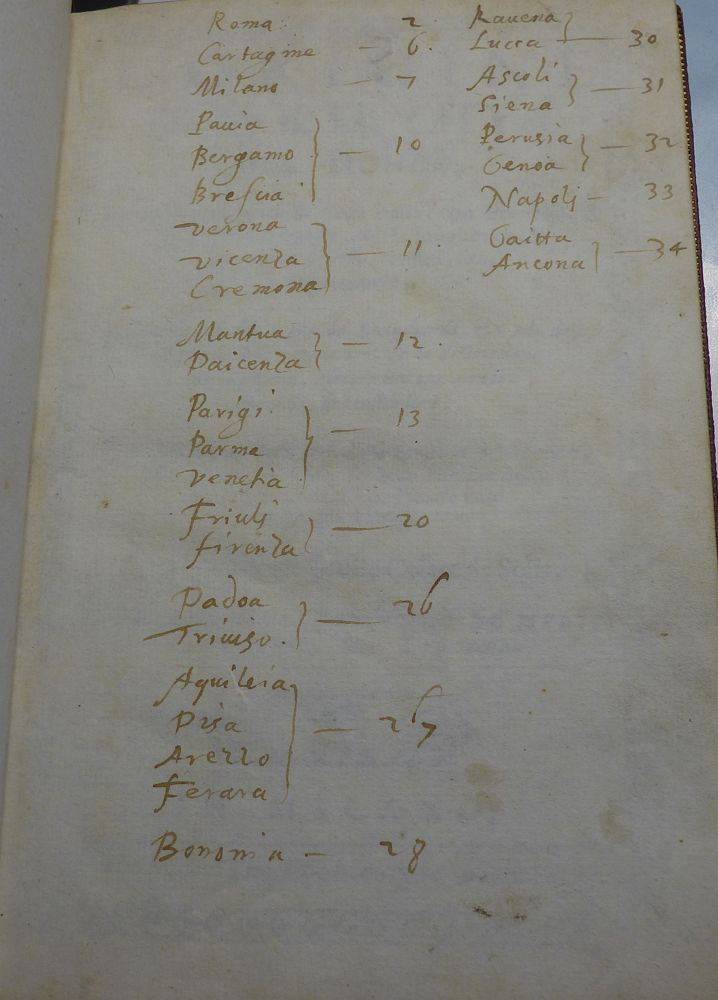 Roma 2.
Cartagine — 6.
Milano — 7
Pauia
Bergamo } — 10
Brescia
Verona
Vicenza } — 11.
Cremona
Mantua } — 12.
Paicenza
Parigi
Parma } — 13
Venetia
Friuli } — 20
firenza
Padoa } — 26
Triuiso.
Aquileia
Pisa } — 27
Arezzo
Ferara
Bononia — 28
Rauena }
Lucca — 30
Ascoli } — 31
Siena
Perusia } — 32
Genoa
Napolj — 33
Gaitta } — 34
Ancona